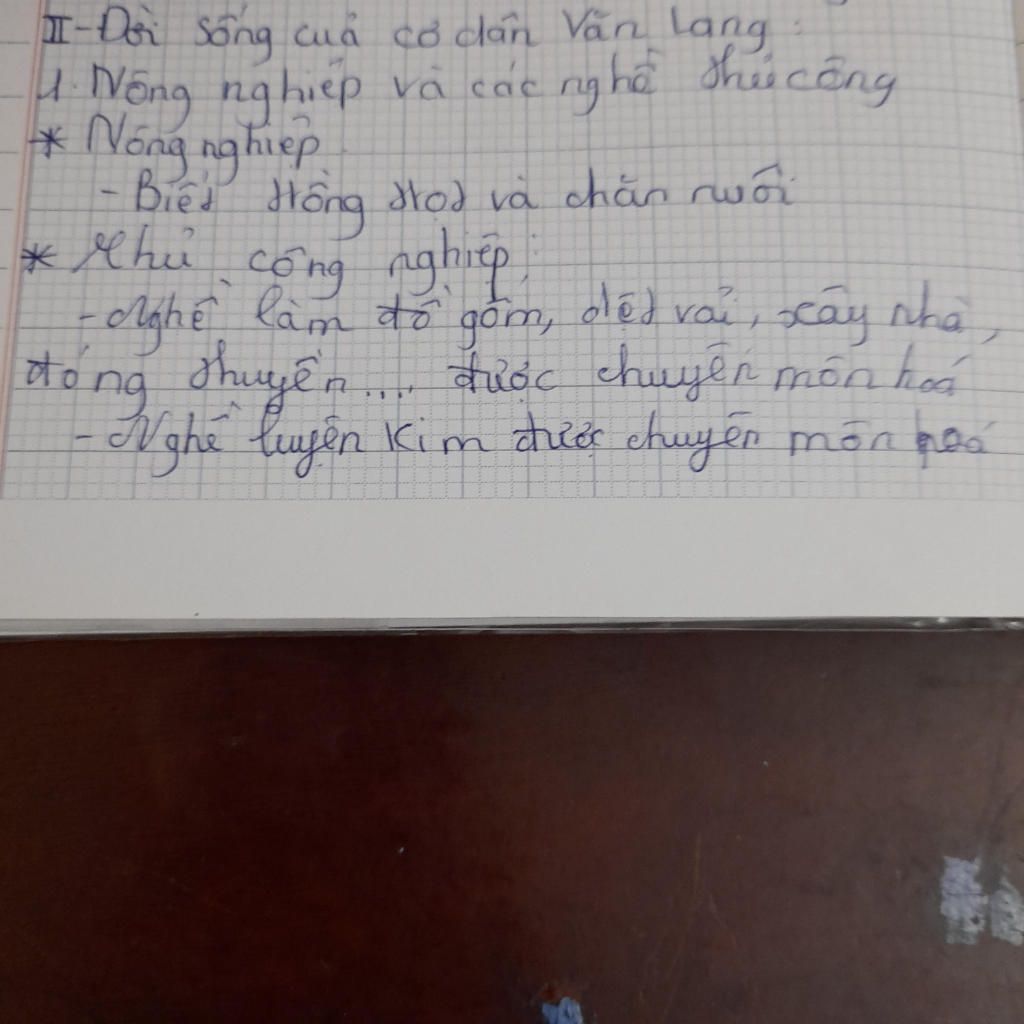 II-Đời sống cuả cơ dân Văn Lang:
1. Nông nghiệp và các nghề thủ công
* Nông nghiệp
- Biết trồng trọt và chăn nuôi
* Thủ công nghiệp:
- Nghề làm đồ gốm, dệt vải, xây nhà,
đóng thuyền... được chuyên môn hoá
- Nghề luyện kim được chuyên môn hoá